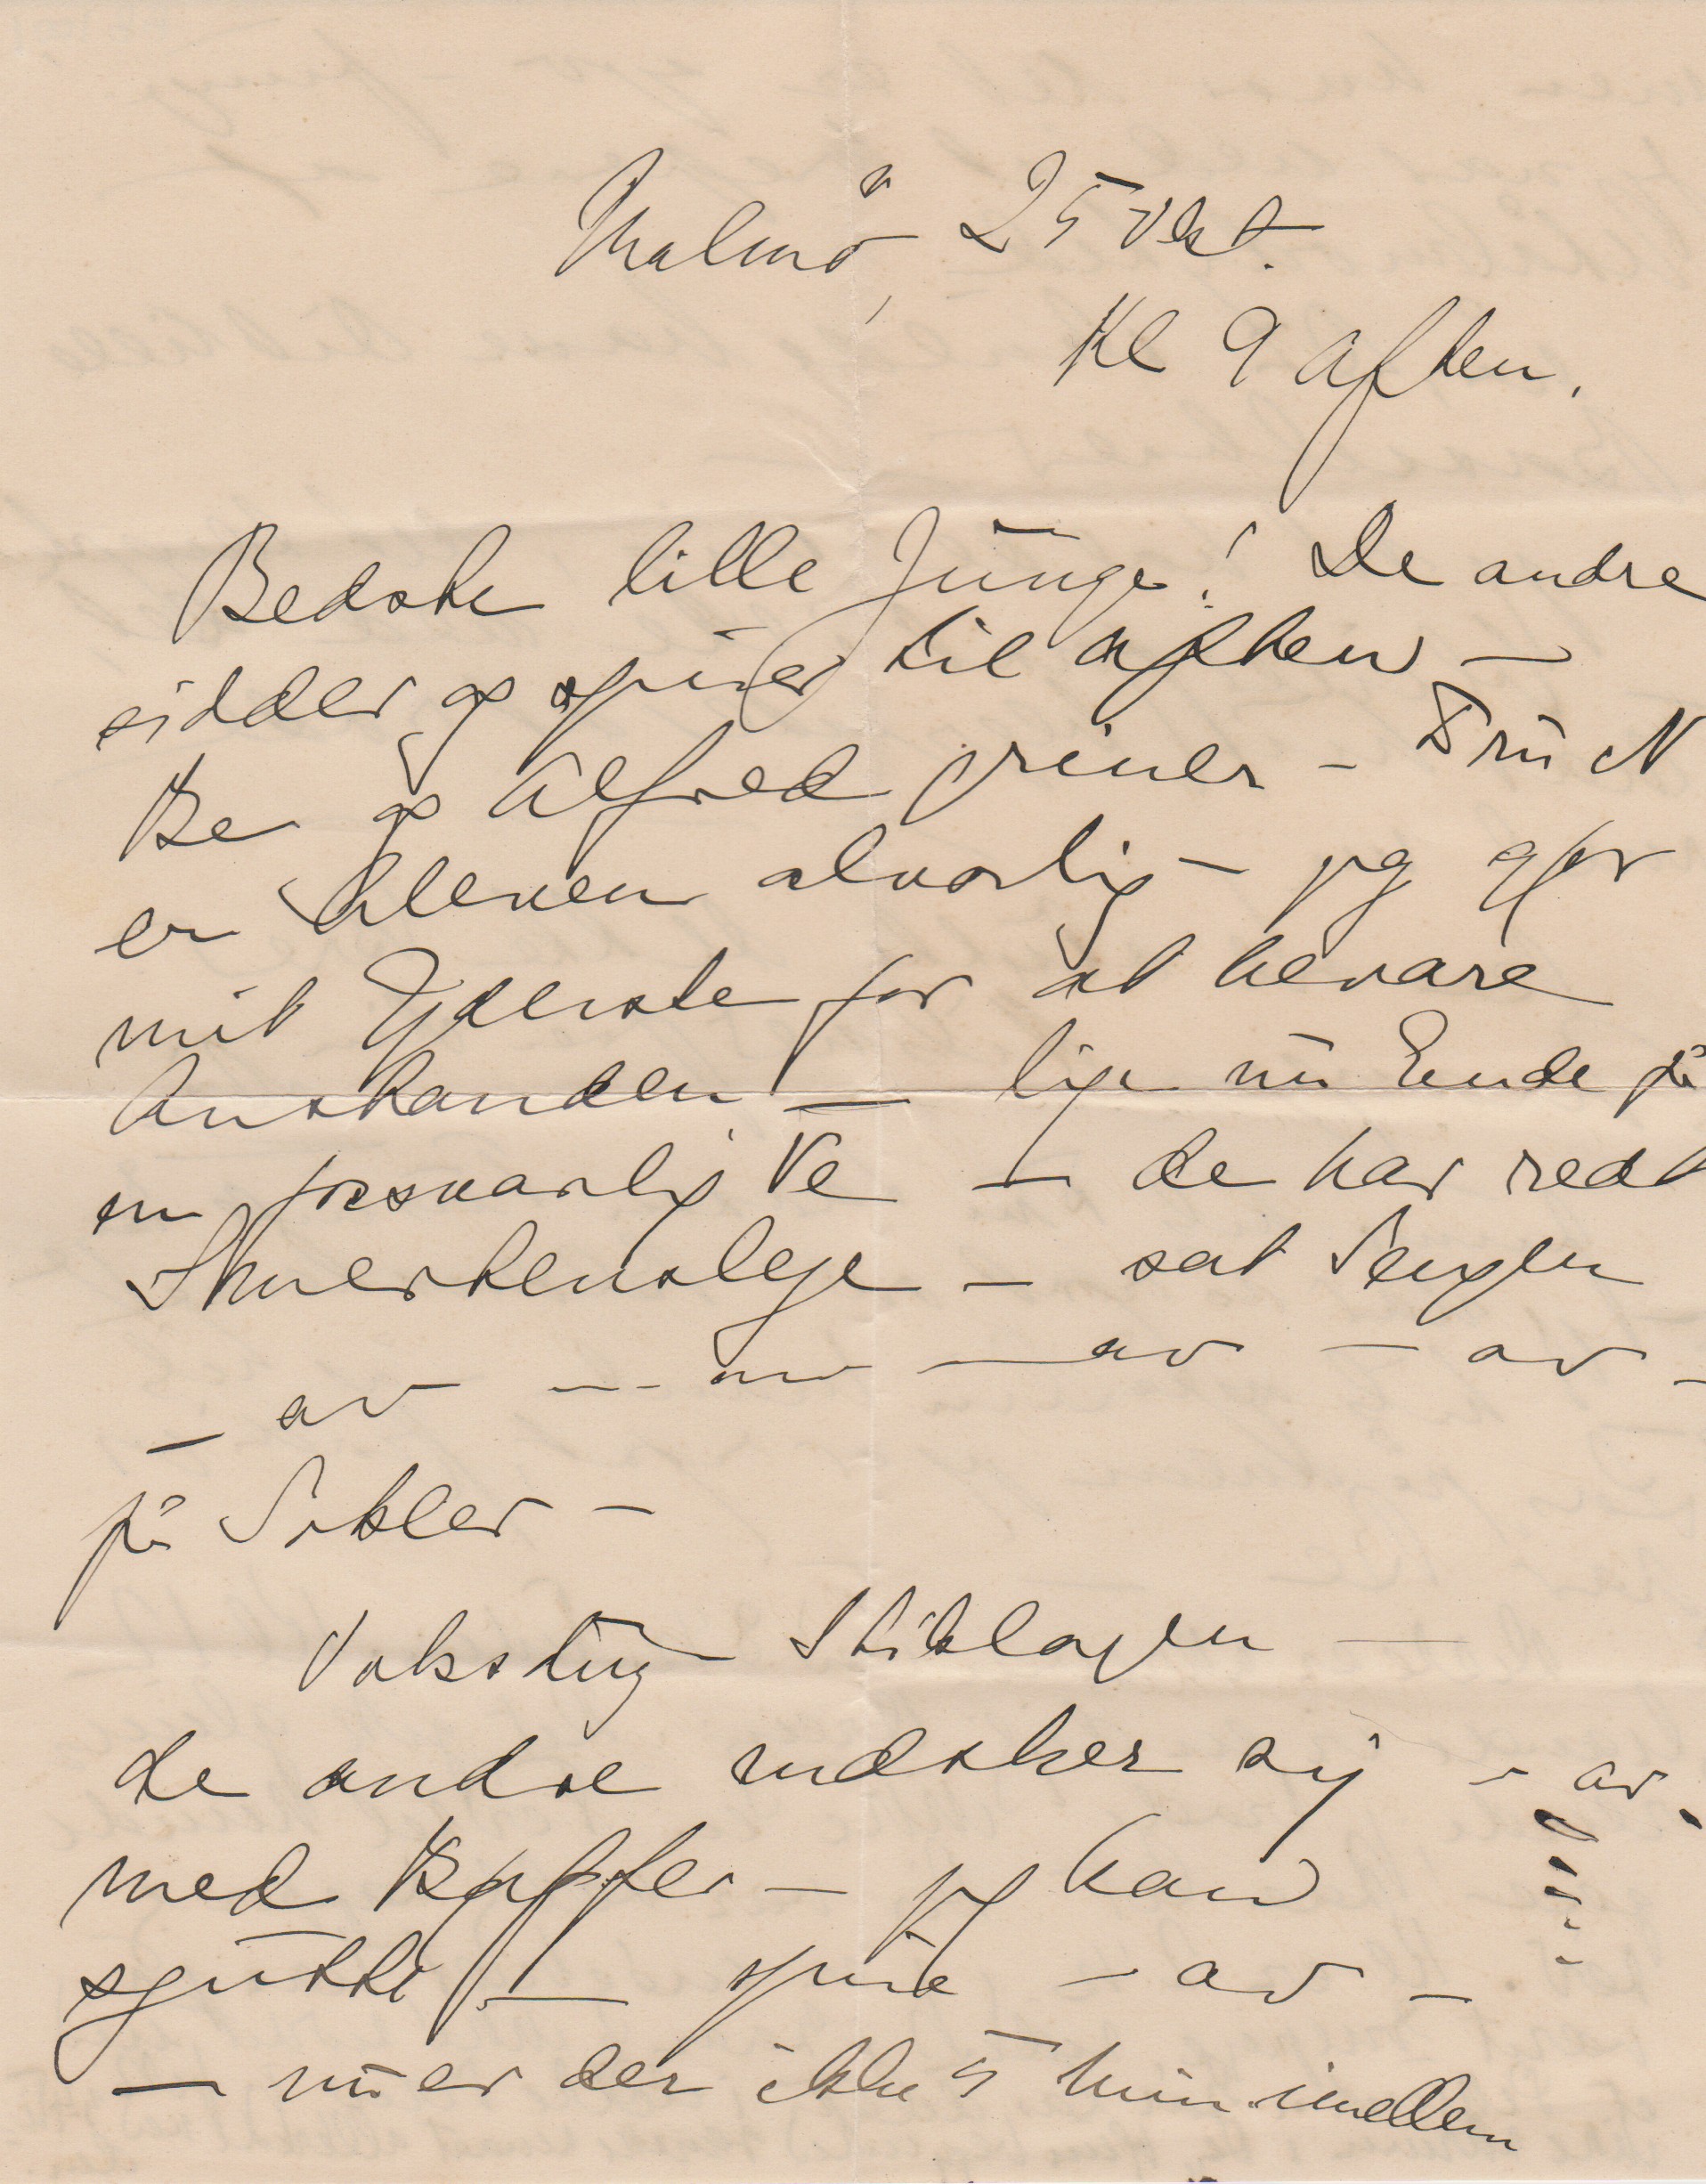 Malmö, 25 Okt.
Kl 9 Aften.
Bedste lille Junge! De andre
sidder og spiser til Aften —
Be og Alfred griner – Fru N
er bleven alvorlig – jeg gjør
mit Yderste for at bevare
Anstanden — lige nu Ende på
en forsvarlig Ve — de har redt
Smertensleje – sat Sengen
— av --- av — av — av –
på Sokler –
Voksdug Stiklagen —
de andre mæsker sig – av –
med Bøffer — jeg kan
sgutte — spise – av –
— nu er der ikke 5 Min. imellem